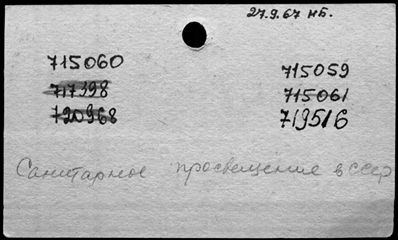 27.9.67 НБ.
715060
717398
720968
715059
715061
719516
Санитарное просвещение в СССР